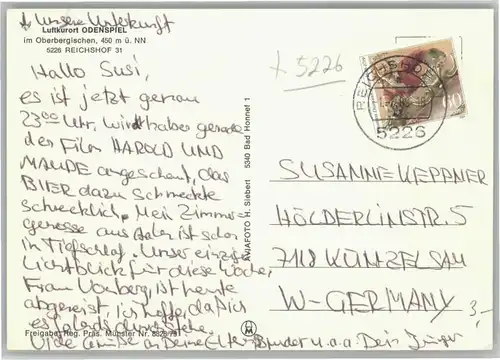 * unsere Unterkunft
Luftkurort ODENSPIEL
im Oberbergischen, 450 m ü. NN
5226 REICHSHOF 31
Hallo Susi,
es ist jetzt genau
23⁰⁰ Uhr, wir haben gerade
den Film HAROLD UND
MAUDE angeschaut, das
BIER dazu schmeckte
schrecklich. Mein Zimmer-
genosse aus Aalen ist schon
im Tiefschlaf. Unser einziger
Lichtblick für diese Woche,
Frau Vonberg ist heute
abgereist. Ich hoffe, daß ich
es durchstehe.
Viele Grüße an Deine Eltern, Bruder u.a. Dein
Freigabe: Reg. Präs. Münster Nr.
AVIAFOTO H. Siebert 5340 Bad Honnef 1
+ 5226
REICHSHOF
5226
SUSANNE KEPPNER
HÖLDERLINSTR. 5
7118 KÜNZELSAU
W-GERMANY
3,-